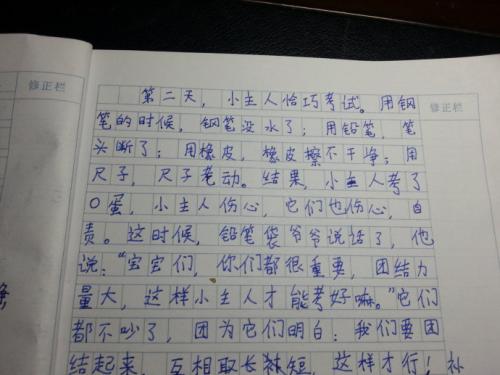 修正栏
第二天，小主人恰巧考试。用钢
修正栏
笔的时候，钢笔没水了；用铅笔，笔
头断了；用橡皮，橡皮擦不干净；用
尺子，尺子老动。结果，小主人考了
0蛋，小主人伤心，它们也伤心，自
责。这时候，铅笔袋爷爷说话了，他
说："宝宝们，你们都很重要，团结力
量大，这样小主人才能考好嘛。"它们
都不吵了，因为它们明白：我们要团
结起来，互相取长补短，这样才行！补